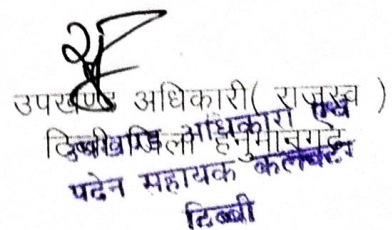 उपखण्ड अधिकारी( राजस्व )
टिब्बी जिला हनुमानगढ़
अधिकारी एवं
पदेन सहायक कलक्टर
टिब्बी